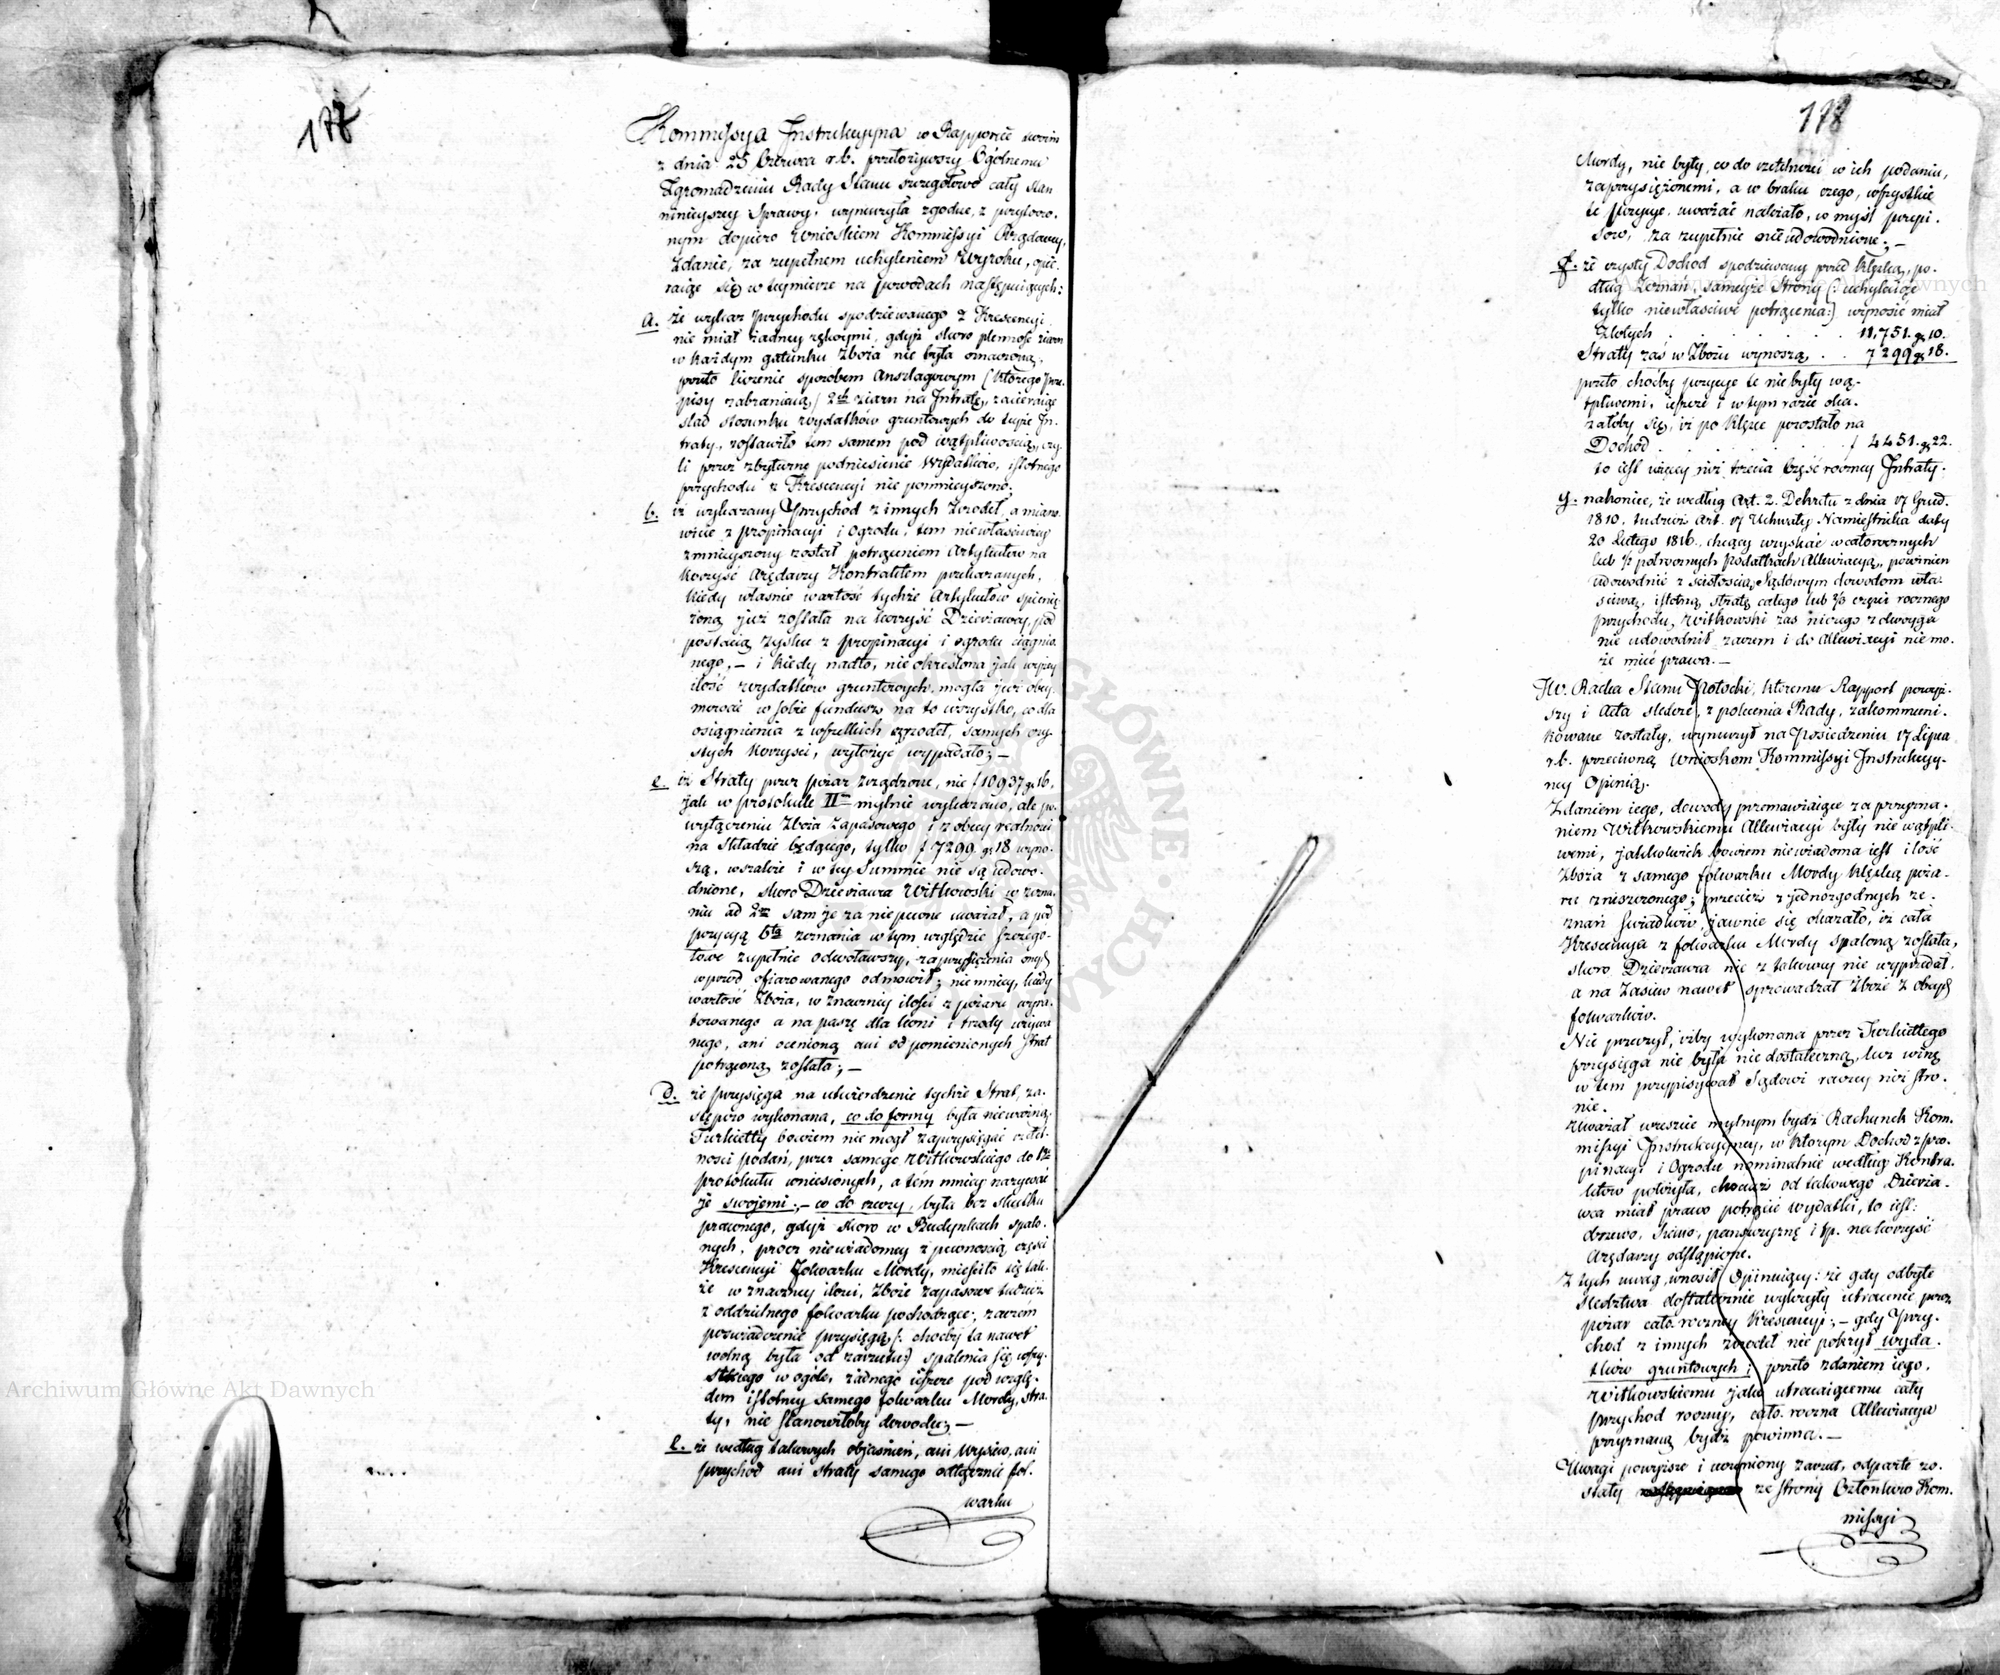 177
Kommissya Instrukcyyna w Rapporcie swoim
z dnia 25 Czerwca r.b. przełożywszy Ogólnemu
Zgromadzeniu Rady Stanu szczegółowo cały stan
ninieyszey Sprawy, wynurzyła zgodne, z przytoczo-
nym dopiero Wnioskiem Kommissyi Rządowey,
Zdanie, za zupełnem uchyleniem Wyroku, opie-
raiąc się w teymierze na powodach następuiących:
a. że wykaz Przychodu spodziewanego z Krescencyi
nie miał żadney rękoymi, gdyż skoro plenność ziarn
w każdym gatunku Zboża nie była oznaczoną,
przeto liczenie sposobem Anszlagowym (którego prze-
pisy zabraniaią) 2ch ziarn na Intratę, zacieraiąc
ślad stosunku wydatków gruntowych do teyże In-
traty, zostawiło tem samem pod wątpliwością, czy-
li przez zbyteczne podniesienie Wydatków, istotnego
przychodu z Krescencyi nie pomnieyszono;
b. iż wykazany Przychód z innych źrodeł, a miano-
wicie z Propinacyi i Ogrodu, tem niewłaściwiey
zmnieyszony został potrąceniem Artykułów na
korzyść Arędarzy Kontraktem przekazanych,
kiedy własnie wartość tychże Artykułów spienię-
żoną już została na korzyść Dzierżawcy, pod
postacią zysku z propinacyi i ogrodu ciągnio-
nego, – i kiedy nadto, nie określona jak wyżey
ilość wydatków gruntowych, mogła już obey-
mować w sobie fundusz na to wszystko, co dla
osiągnienia z wszelkich źrodeł, samych czy-
stych korzyści, wyłożyć wypadało; –
c. iż Straty przez pożar zrządzone, nie f 10937 gr 16,
jak w protokule II mylnie wykazano, ale po
wyłączeniu Zboża Zapasowego i z obcey realności
na składzie będącego, tylko f 7299 gr 18 wyno-
szą, wszakże i w tey Summie nie są udowo-
dnione, skoro Dzierżawca Witkowski w zezna-
niu ad 2 sam je za niepewne uważał, a pod
pozycyą 6tą zeznania w tym względzie szczegó-
łowe zupełnie odwoławszy, zaprzysiężenia onych
wprzód ofiarowanego odmówił; niemniey, kiedy
wartość Zboża, w znaczney ilości z pożaru wyra-
towanego a na paszę dla koni i trzody używa-
nego, ani ocenioną ani od pomienionych Strat
potrąconą została; –
d. że przysięga na utwierdzenie tychże Strat, za-
stępczo wykonana, co do formy była nieważną,
Turkietty bowiem nie mógł zaprzysięgać rzetel-
ności podań, przez samego Witkowskiego do
protokułu wniesionych, a tém mniey nazywać
je swojemi; – co do rzeczy, była bez skutku
prawnego, gdyż skoro w Budynkach spalo-
nych, prócz niewiadomey z pewnością części
Krescencyi Folwarku Mordy, mieściło się tak-
że w znaczney ilości, Zboże zapasowe tudzież
z oddzielnego folwarku pochodzące; zaczem
poświadczenie przysięgą (: choćby ta nawet
wolną była od zarzutu:) spalenia się wszy-
stkiego w ogóle, żadnego jeszcze pod wzglę-
dem istotney samego folwarku Mordy, stra-
ty, nie stanowiłoby dowodu; –
e. że według takowych objaśnień, ani wysiew, ani
przychód ani straty samego odłącznie fol-
warku
178
Mordy, nie były, co do rzetelności w ich podaniu,
zaprzysiężonemi, a w braku czego, wszystkie
te pozycye uważać należało, w myśl przepi-
sów, za zupełnie nieudowodnione; –
f. że czysty Dochod spodziewany przed klęską, po-
dług Zeznań sameyże Strony (: uchylaiąc
tylko niewłaściwe potrącenia:) wynosić miał
Złotych . . . . 11,751. gr 10.
Straty zaś w Zbożu wynoszą . . 7299 gr 18.
przeto choćby pozycye te nie były wą-
tpliwemi, jeszcze i w tym razie oka-
załoby się, iż po klęsce pozostało na
Dochód . . . . f 4451. gr 22.
to jest więcey niż trzecia część roczney Intraty.
g. nakoniec, że według Art. 2. Dekretu z dnia 17 Grud.
1810, tudzież Art. 17 Uchwały Namiestnika daty
20 Lutego 1816, chcący uzyskać w całorocznych
lub ½ półrocznych Podatkach Allewiacyą, powinien
udowodnić z ścisłością Sądowym dowodom wła-
ściwą, istotną stratę całego lub ⅔ części rocznego
przychodu, Witkowski zaś niczego z dwoyga
nie udowodnił, zaczem i do Allewiacyi nie mo-
że mieć prawa. –
JW. Radca Stanu Potocki, któremu Rapport powyż-
szy i Akta śledcze, z polecenia Rady, zakommuni-
kowane zostały, wynurzył na Posiedzeniu 17 Lipca
r.b. przeciwną Wnioskom Kommissyi Instrukcyy-
ney Opinią.
Zdaniem jego, dowody przemawiaiące za przyzna-
niem Witkowskiemu Allewiacyi były nie wątpli-
wemi, jakkolwiek bowiem niewiadoma jest ilość
Zboża z samego folwarku Mordy klęską poża-
ru zniszczonego; przecież z jednozgodnych ze-
znań świadków, jawnie się okazało, iż cała
Krescencya z folwarku Mordy spaloną została,
skoro Dzierżawca nic z takowey nie wyprzedał,
a na Zasiew nawet sprowadzał Zboże z obcych
folwarków.
Nie przeczył, iżby wykonana przez Turkiettego
przysięga nie była niedostateczną, lecz winę
w tem przypisywał Sądowi raczey niż stro-
nie.
Uważał wreszcie mylnym bydź Rachunek Kom-
missyi Instrukcyyney, w którym Dochód z pro-
pinacyi i Ogrodu nominalnie według Kontra-
któw położyła, chociaż od takowego Dzierża-
wca miał prawo potrącić wydatki, to jest:
drzewo, siano, pańszczyznę i tp. na korzyść
Arędarzy odstąpione.
Z tych uwag wnosił Opiniuiący: że gdy odbyte
śledztwa dostatecznie wykryły utracenie przez
pożar cało-roczney Krescencyi; – gdy Przy-
chód z innych źrodeł nie pokrył wyda-
tków gruntowych; przeto zdaniem jego,
Witkowskiemu jako utracaiącemu cały
przychód roczny, cało-roczna Allewiacya
przyznaną bydź powinna. –
Uwagi powyższe i uczyniony zarzut, odparte zo-
stały ze strony Członków Kom-
missyi
Archiwum Główne Akt Dawnych